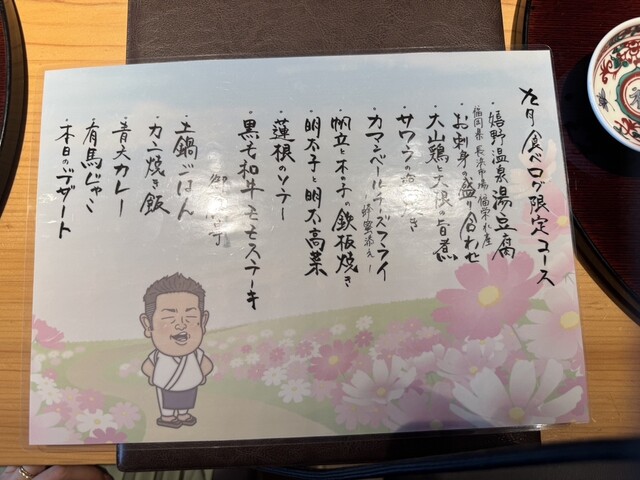 九月 食べログ限定コース
・嬉野温泉湯豆腐
福岡県 長浜市場 福栄水産
・お刺身の盛り合わせ
・大山鶏と大根の旨煮
・サワラの 焼き
・カマンベールチーズフライ
-蜂蜜添え-
・帆立と木の子の鉄板焼き
・明太子と明太高菜
・蓮根のソテー
・黒毛和牛モモステーキ
・土鍋ごはん
・カニ焼き飯
・青大カレー
・有馬じゃこ
・本日のデザート